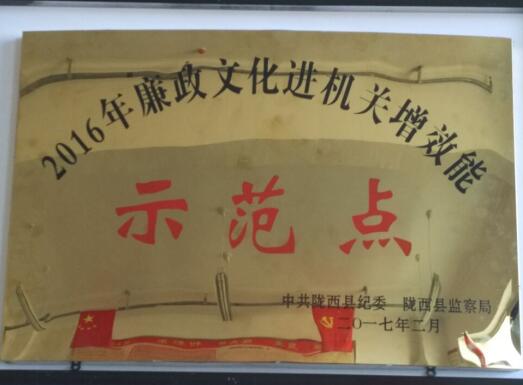 2016年廉政文化进机关增效能
示范点
中共陇西县纪委 陇西县监察局
二○一七年二月